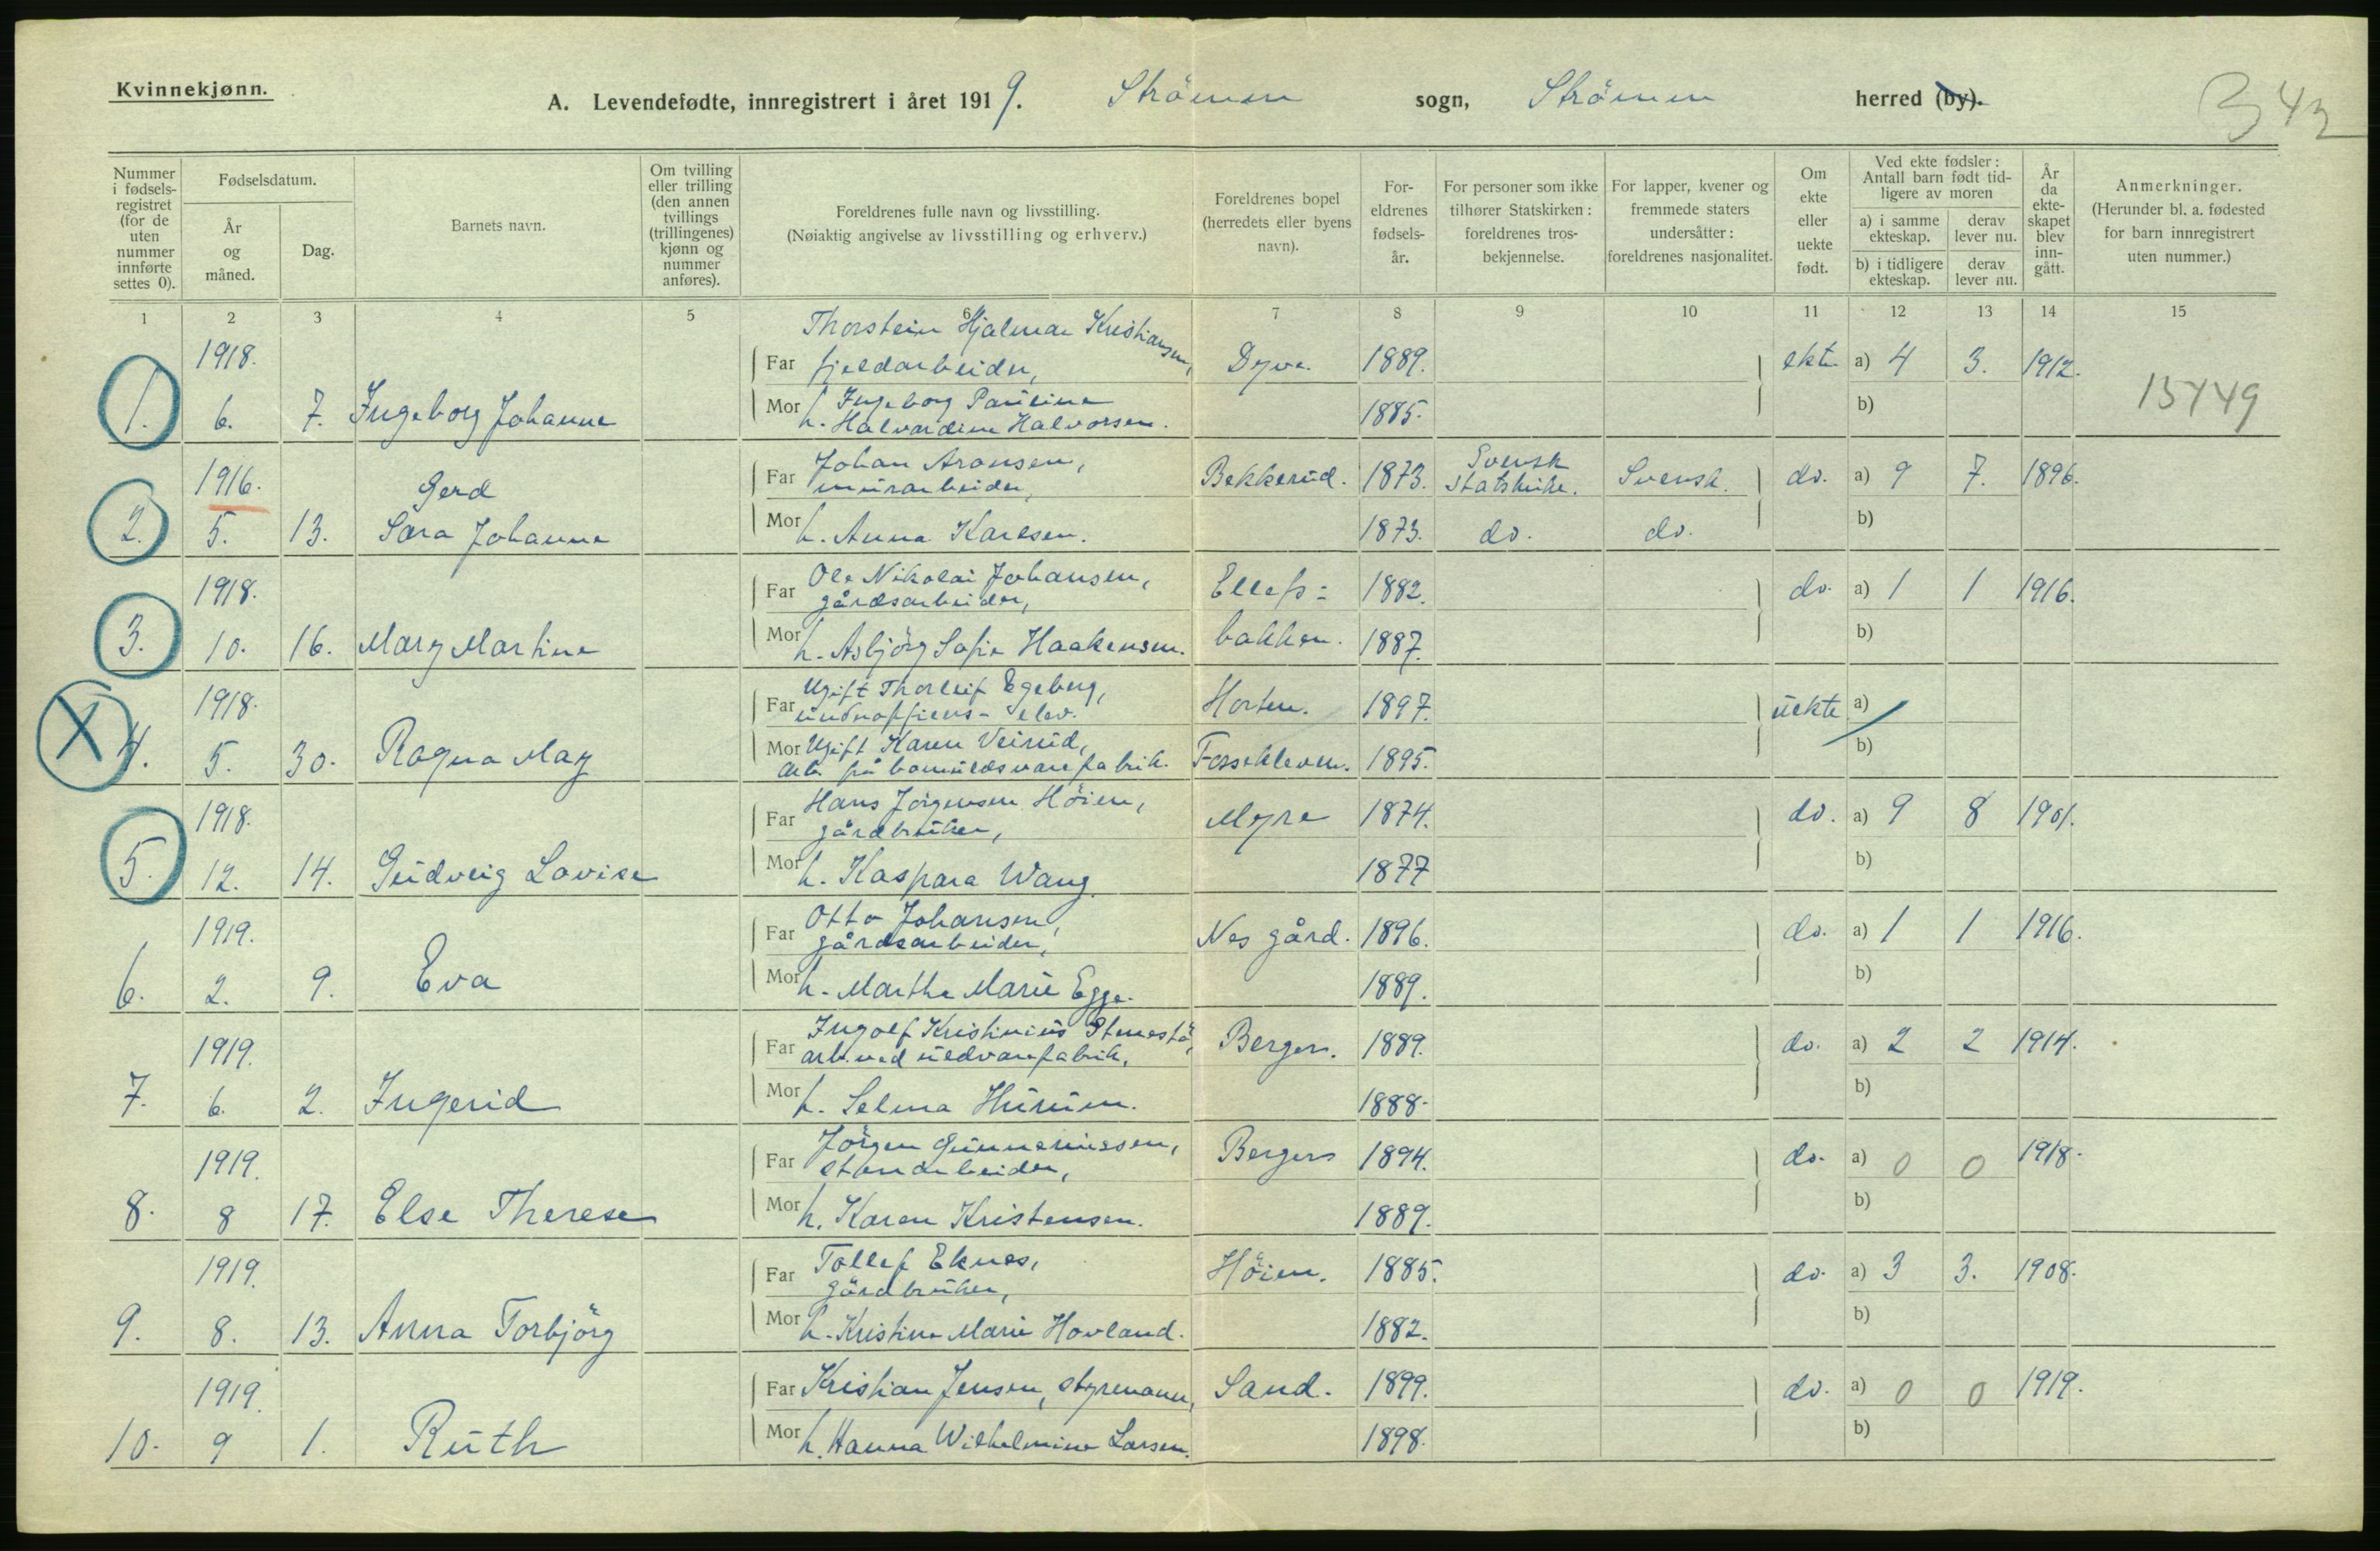 Kvinnekjønn.
A. Levendefødte, innregistrert i året 1919. Strömm sogn, Strömm herred (by).
B 42
Nummer i fødselsregistret (for de uten nummer innførte settes 0).
Fødselsdatum.
År og måned.
Dag.
Barnets navn.
Om tvilling eller trilling (den annen tvillings (trillingenes) kjønn og nummer anføres).
Foreldrenes fulle navn og livsstilling.
(Nøiaktig angivelse av livsstilling og erhverv.)
Foreldrenes bopel (herredets eller byens navn).
Foreldrenes fødselsår.
For personer som ikke tilhører Statskirken: foreldrenes trosbekjennelse.
For lapper, kvener og fremmede staters undersåtter: foreldrenes nasjonalitet.
Om ekte eller uekte født.
Ved ekte fødsler: Antall barn født tidligere av moren
a) i samme ekteskap. derav lever nu.
b) i tidligere ekteskap. derav lever nu.
År da ekteskapet blev inngått.
Anmerkninger.
(Herunder bl. a. fødested for barn innregistrert uten nummer.)
1 2 3 4 5 6 7 8 9 10 11 12 13 14 15
Thorstein Hjalmar Kristiansen,
1918. Far fjeldarbeider, Dyve. 1889. ekte a) 4 3. 1912.
1. 6. 7. Ingeborg Johanne Mor h. Ingeborg Pauline 1885. b) 15449
Halvardine Halvorsen.
1916. Gerd Far Johan Aronsen, Bekkerud. 1873. Svensk Statskirke. Svensk. do. a) 9 7. 1896.
murarbeider,
2. 5. 13. Sara Johanne Mor h. Anna Karlsen. 1873. do. do. b)
1918. Far Ole Nikolai Johansen, Ellefs= 1882. do. a) 1 1 1916.
gårdsarbeider,
3. 10. 16. Mary Martine Mor h. Asbjörg Sofie Haakensen. bakken. 1887. b)
1918. Far Ugift Thorleif Egeberg, Horten. 1897. uekte a)
underofficers-elev.
X 4. 5. 30. Ragna May Mor Ugift Karen Veirud, Fossekleven. 1895. b)
arb. på bomuldsvarefabrik.
1918. Far Hans Jörgensen Höien, Myre 1874. do. a) 9 8 1901.
gårdbruker,
5. 12. 14. Gudveig Lovise Mor h. Kaspara Wang. 1877 b)
1919. Far Otto Johansen, Nes gård. 1896. do. a) 1 1 1916.
gårdsarbeider,
6. 2. 9. Eva Mor h. Marthe Marie Egge. 1889. b)
1919. Far Ingolf Kristinius Bergers. 1889. do. a) 2 2 1914.
arb. ved uldvarefabrik,
7. 6. 2. Ingerid Mor h. Selma Hurum. 1888. b)
1919. Far Jörgen Gunneriussen, Bergers 1894. do. a) 0 0 1918.
stenarbeider,
8. 8 17. Else Therese Mor h. Karen Kristensen. 1889. b)
1919. Far Tollef Eknes, Höien. 1885. do. a) 3 3. 1908.
gårdbruker,
9. 8. 13. Anna Torbjörg Mor h. Kristine Marie Hovland. 1882. b)
1919. Far Kristian Jensen, styrmann, Sand. 1899. do. a) 0 0 1919.
10. 9 1. Ruth Mor h. Hanna Wilhelmine Larsen. 1898. b)